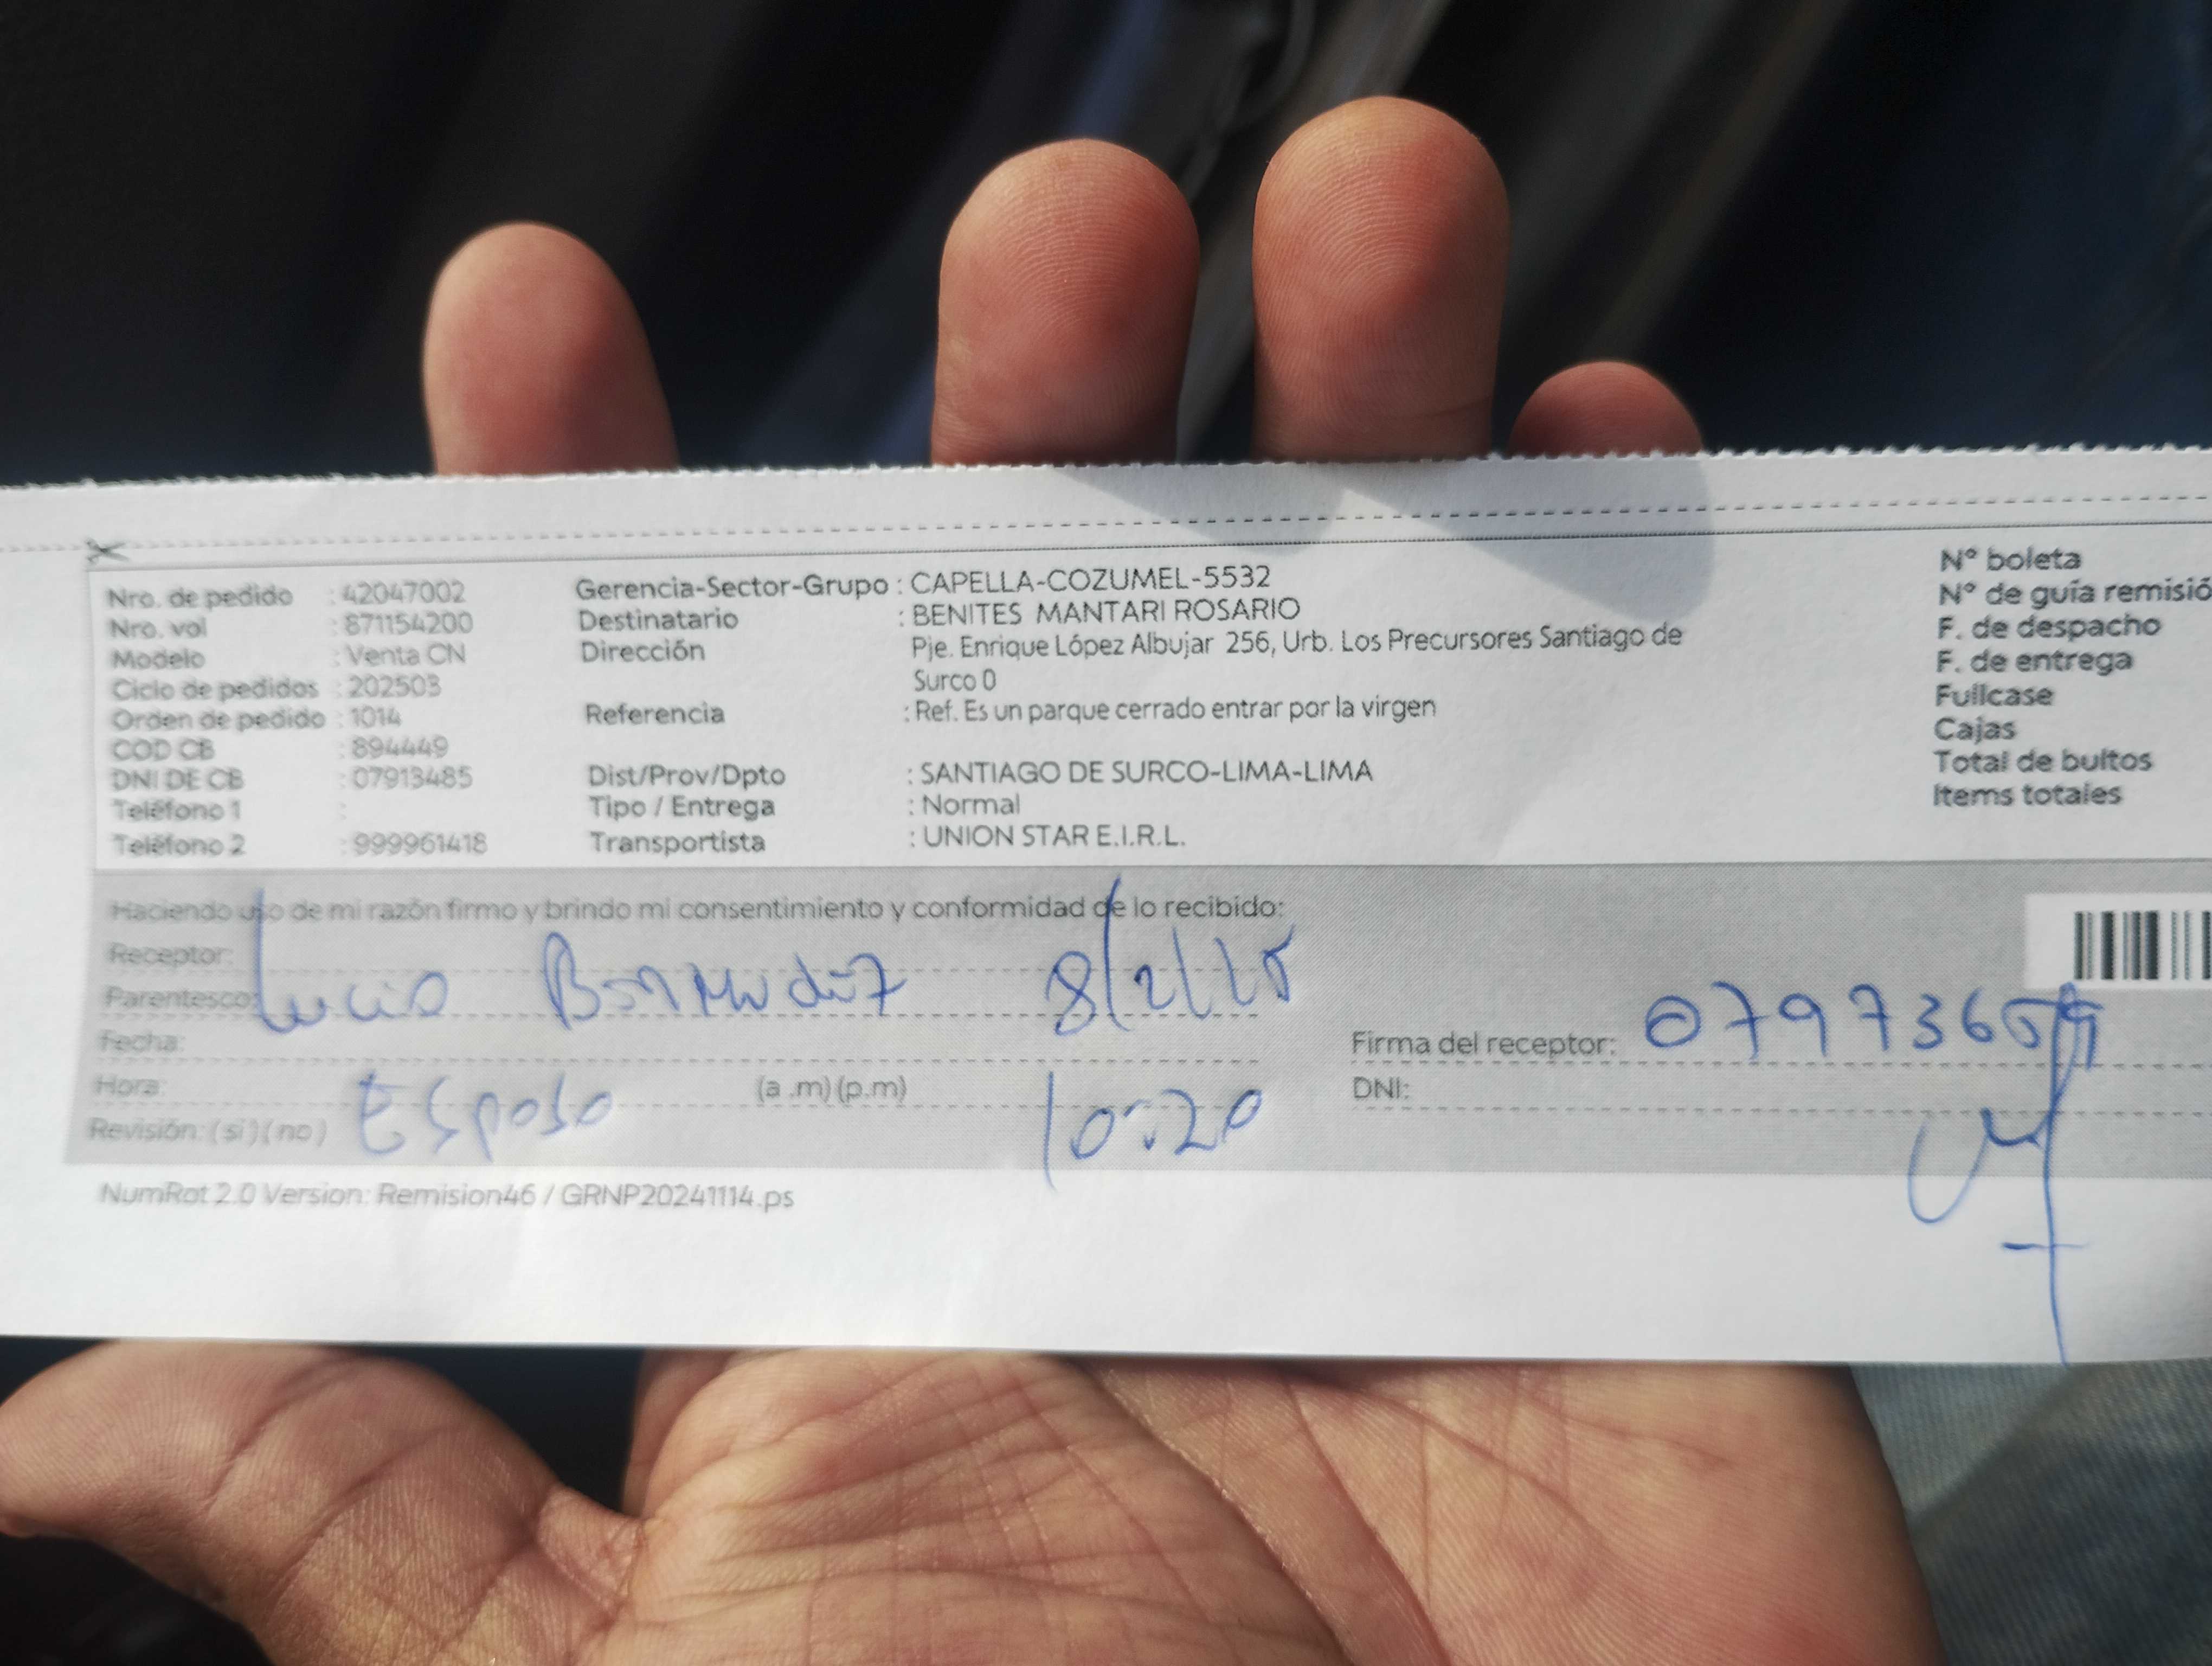 Nro. de pedido : 42047002
Nro. vol : 871154200
Modelo : Venta CN
Ciclo de pedidos : 202503
Orden de pedido : 1014
COD CB : 894449
DNI DE CB : 07913485
Teléfono 1 :
Teléfono 2 : 999961418
Gerencia-Sector-Grupo : CAPELLA-COZUMEL-5532
Destinatario : BENITES MANTARI ROSARIO
Dirección Pje. Enrique López Albujar 256, Urb. Los Precursores Santiago de
Surco 0
Referencia : Ref. Es un parque cerrado entrar por la virgen
Dist/Prov/Dpto : SANTIAGO DE SURCO-LIMA-LIMA
Tipo / Entrega : Normal
Transportista : UNION STAR E.I.R.L.
N° boleta
N° de guía remisió
F. de despacho
F. de entrega
Fullcase
Cajas
Total de bultos
Items totales
Haciendo uso de mi razón firmo y brindo mi consentimiento y conformidad de lo recibido:
Receptor:
Parentesco: Lucio 8/2/25
Fecha:
Hora: (a .m) (p.m)
Esposo 10:20
Revisión: (si) (no)
Firma del receptor:
DNI:
NumRot 2.0 Version: Remision46 / GRNP20241114.ps